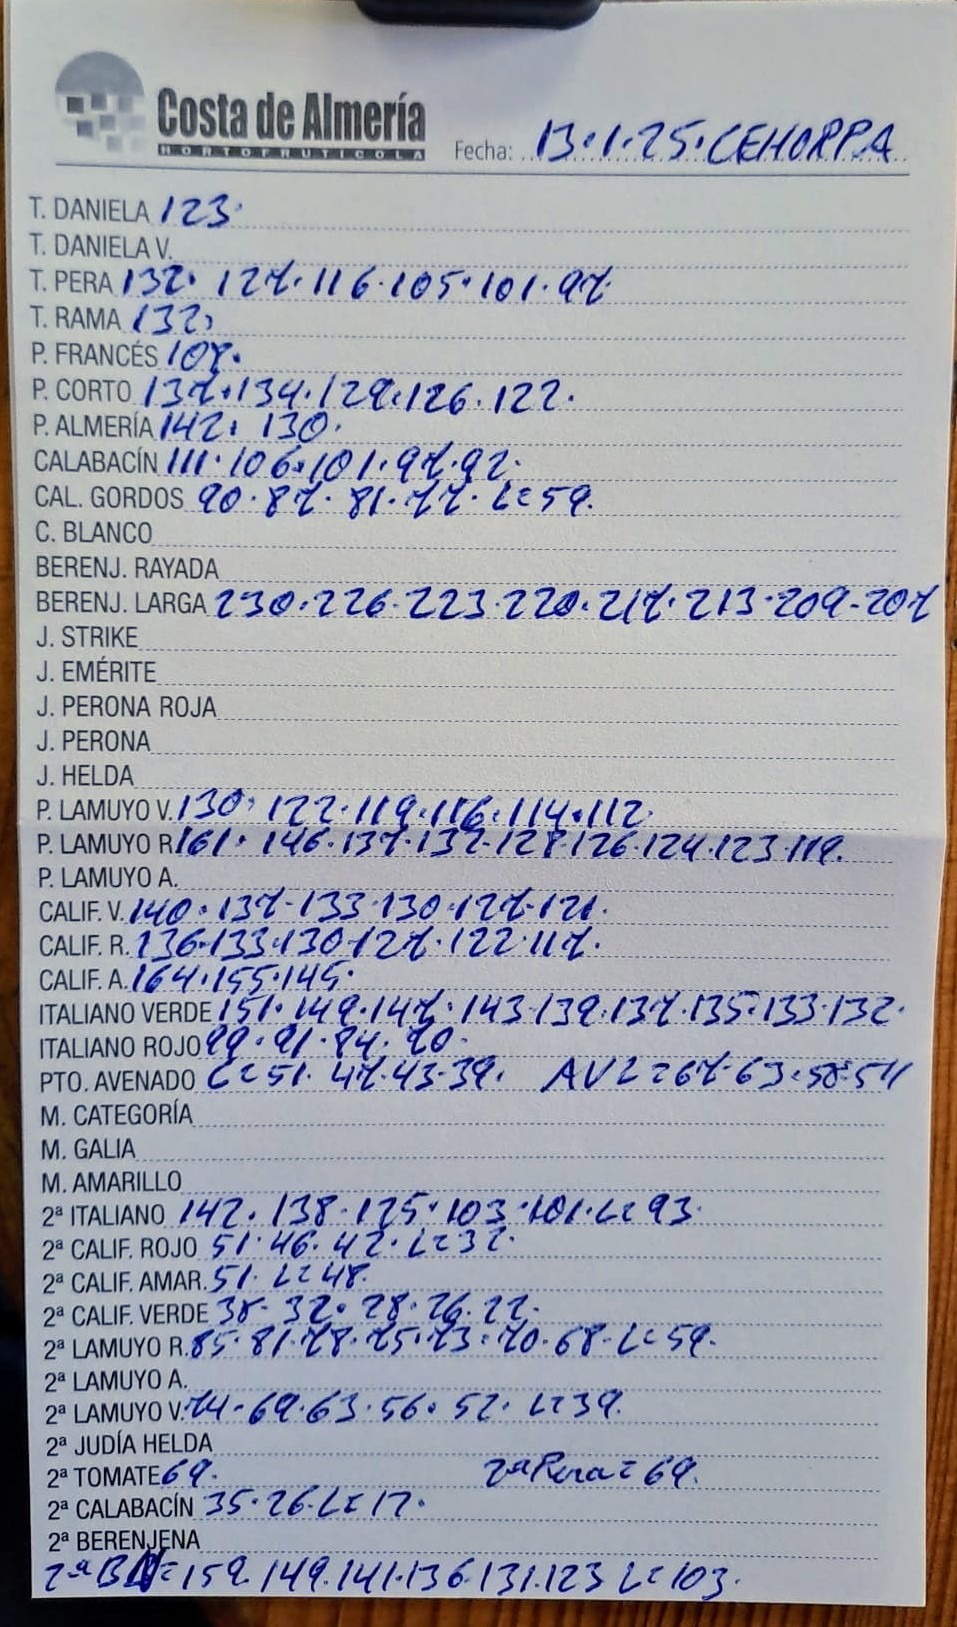 Costa de Almería
HORTOFRUTÍCOLA
Fecha: 13.1.25.CEHORPA
T. DANIELA 123.
T. DANIELA V.
T. PERA 132. 127.116.105.101.97.
T. RAMA 132,
P. FRANCÉS 107.
P. CORTO 137.134.129.126.122.
P. ALMERÍA 142. 130.
CALABACÍN 111.106.101.97.92.
CAL. GORDOS 90.87.81.77. L=59.
C. BLANCO
BERENJ. RAYADA
BERENJ. LARGA 230.226.223.220.217.213.209-207
J. STRIKE
J. EMÉRITE
J. PERONA ROJA
J. PERONA
J. HELDA
P. LAMUYO V. 130, 122.119.116.114.112.
P. LAMUYO R 161. 146.137.132-128.126.124.123.119.
P. LAMUYO A.
CALIF. V. 140.137-133.130.127.121.
CALIF. R. 136-133.130.127.122.117.
CALIF. A. 164.155.145.
ITALIANO VERDE 151.149.147.143.139.137.135.133.132.
ITALIANO ROJO 99.91.84.80.
PTO. AVENADO L=51. 47.43.39. AV2=67-63.58.54
M. CATEGORÍA
M. GALIA
M. AMARILLO
2ª ITALIANO 142. 138.125.103.101.L=93.
2ª CALIF. ROJO 51.46.42.L=32.
2ª CALIF. AMAR. 51. L=48.
2ª CALIF. VERDE 38- 32.28.26.22.
2ª LAMUYO R. 85.81.78.75.73.70.68.L=59.
2ª LAMUYO A.
2ª LAMUYO V. 74-69.63.56.52. L=39.
2ª JUDÍA HELDA
2ª TOMATE 69. 2ªPera=69.
2ª CALABACÍN 35.26.L=17.
2ª BERENJENA
=159.149.141.136.131.123 L=103.